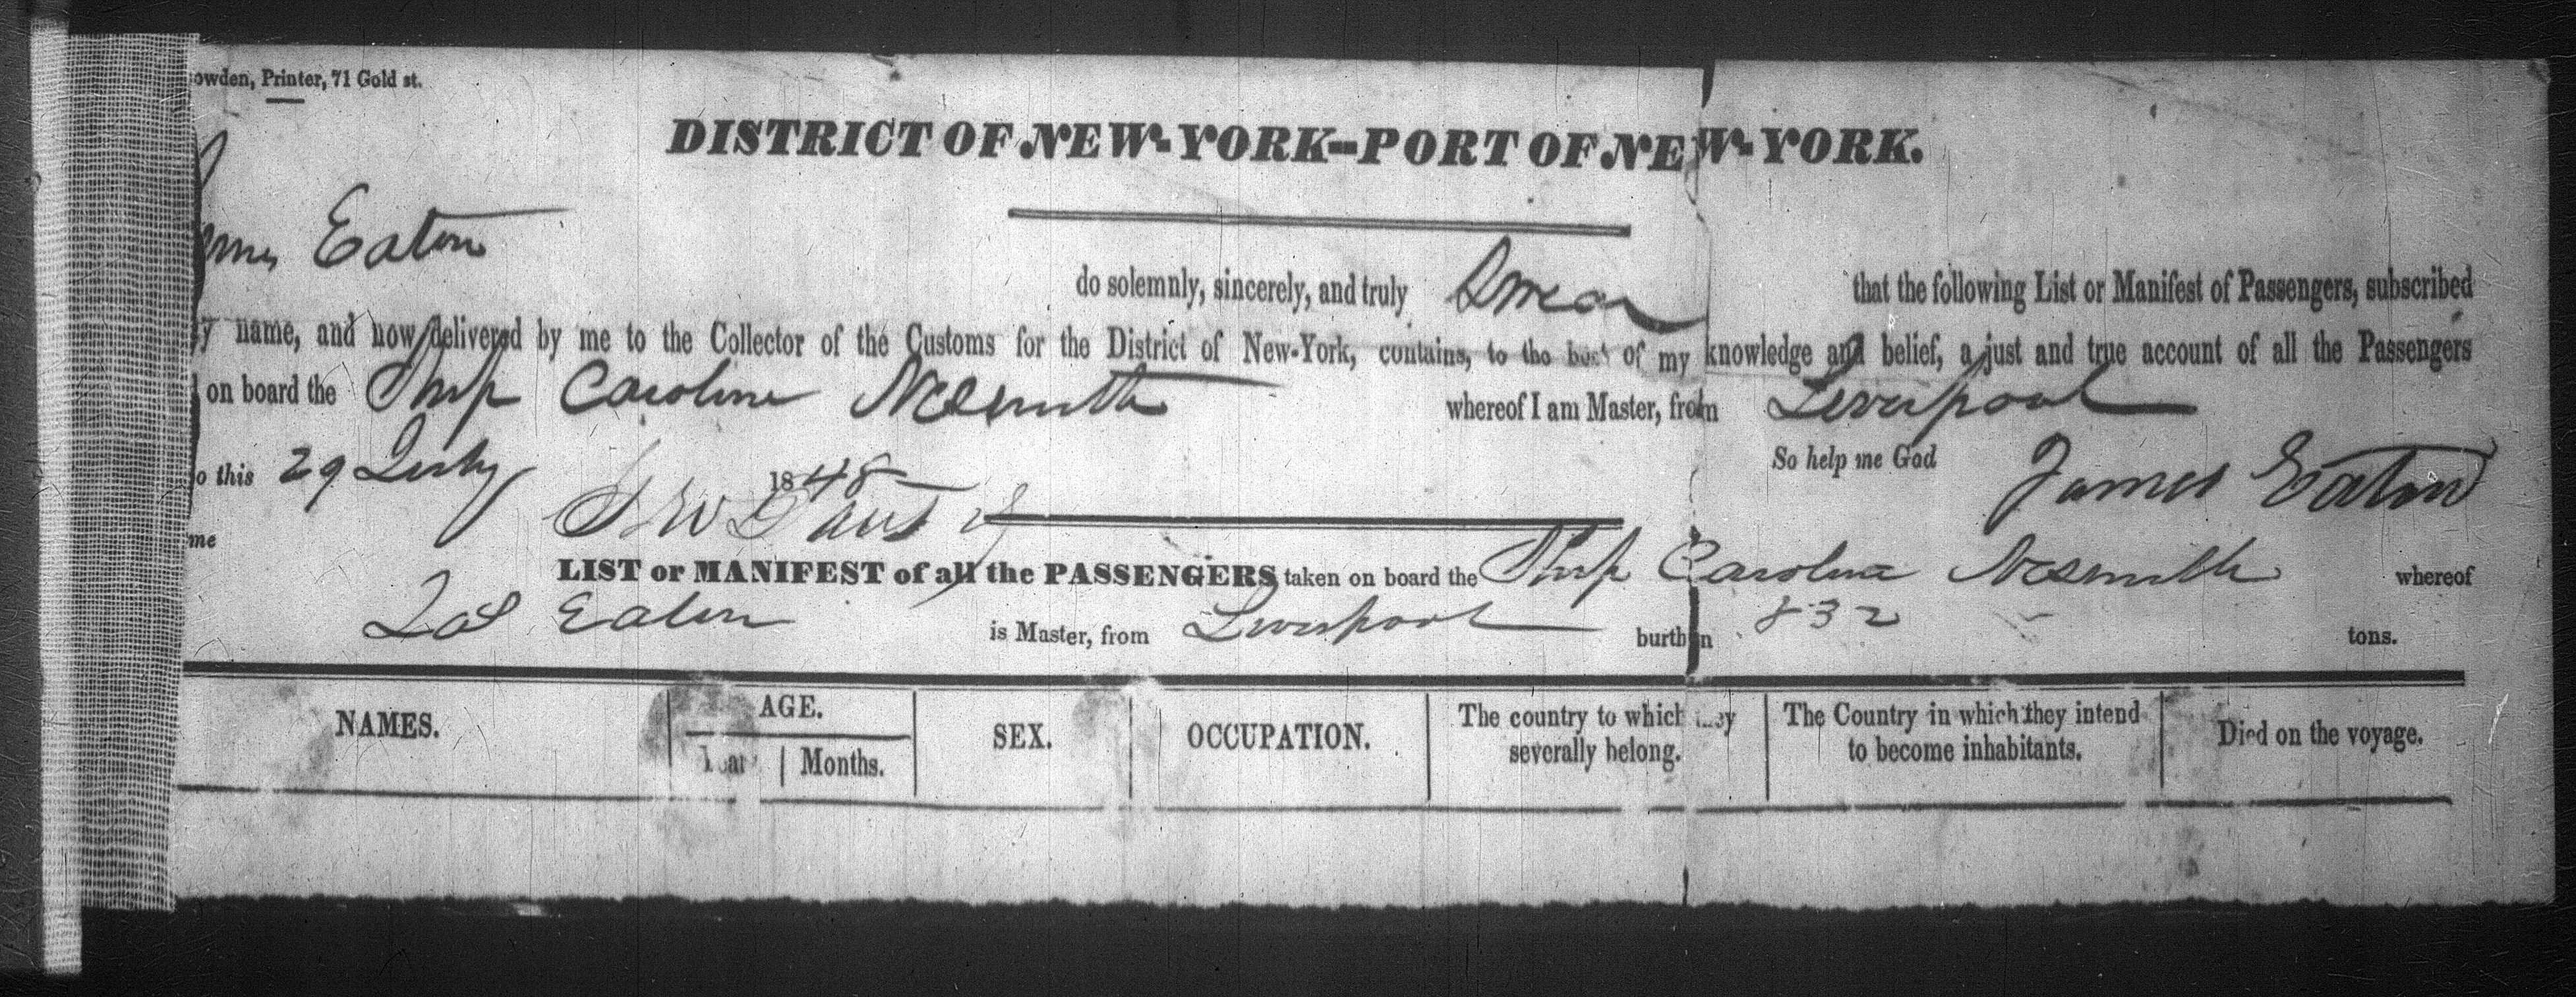 owden, Printer, 71 Gold st.
DISTRICT OF NEW-YORK--PORT OF NEW-YORK.
Eaton do solemnly, sincerely, and truly Swear that the following List or Manifest of Passengers, subscribed
y name, and now delivered by me to the Collector of the Customs for the District of New-York, contains, to the best of my knowledge and belief, a just and true account of all the Passengers
on board the Ship Caroline Nesmith whereof I am Master, from Liverpool
o this 29 July 1848 So help me God James Eaton
me
LIST or MANIFEST of all the PASSENGERS taken on board the Ship Caroline Nesmith whereof
Jas Eaton is Master, from Liverpool burthen 832 tons.
NAMES. AGE. SEX. OCCUPATION. The country to which they severally belong. The Country in which they intend to become inhabitants. Died on the voyage.
Months.